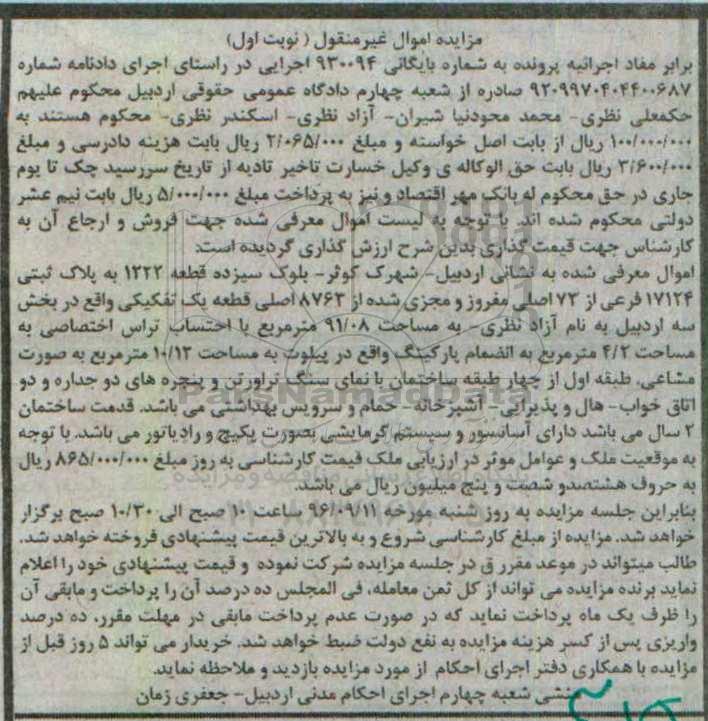 مزایده اموال غیرمنقول ( نوبت اول)
برابر مفاد اجرائیه پرونده به شماره بایگانی ۹۳۰۰۹۴ اجرایی در راستای اجرای دادنامه شماره
۹۲۰۹۹۷۰۴۰۴۴۰۰۶۸۷ صادره از شعبه چهارم دادگاه عمومی حقوقی اردبیل محکوم علیهم
حکمعلی نظری- محمد محودنیا شیران- آزاد نظری- اسکندر نظری- محکوم هستند به
۱۰۰/۰۰۰/۰۰۰ ریال از بابت اصل خواسته و مبلغ ۲/۰۶۵/۰۰۰ ریال بابت هزینه دادرسی و مبلغ
۳/۶۰۰/۰۰۰ ریال بابت حق الوکاله ی وکیل خسارت تاخیر تادیه از تاریخ سررسید چک تا یوم
جاری در حق محکوم له بانک مهر اقتصاد و نیز به پرداخت مبلغ ۵/۰۰۰/۰۰۰ ریال بابت نیم عشر
دولتی محکوم شده اند با توجه به لیست اموال معرفی شده جهت فروش و ارجاع آن به
کارشناس جهت قیمت گذاری بدین شرح ارزش گذاری گردیده است:
اموال معرفی شده به نشانی اردبیل- شهرک کوثر- بلوک سیزده قطعه ۱۲۲۲ به پلاک ثبتی
۱۷۱۲۴ فرعی از ۷۳ اصلی مفروز و مجزی شده از ۸۷۶۳ اصلی قطعه یک تفکیکی واقع در بخش
سه اردبیل به نام آزاد نظری- به مساحت ۹۱/۰۸ مترمربع با احتساب تراس اختصاصی به
مساحت ۴/۲ مترمربع به انضمام پارکینگ واقع در پیلوت به مساحت ۱۰/۱۳ مترمربع به صورت
مشاعی، طبقه اول از چهار طبقه ساختمان با نمای سنگ تراورتن و پنجره های دو جداره و دو
اتاق خواب- هال و پذیرایی- آشپزخانه- حمام و سرویس بهداشتی می باشد. قدمت ساختمان
۲ سال می باشد دارای آسانسور و سیستم گرمایشی بصورت پکیج و رادیاتور می باشد. با توجه
به موقعیت ملک و عوامل موثر در ارزیابی ملک قیمت کارشناسی به روز مبلغ ۸۶۵/۰۰۰/۰۰۰ ریال
به حروف هشتصدو شصت و پنج میلیون ریال می باشد.
بنابراین جلسه مزایده به روز شنبه مورخه ۹۶/۰۹/۱۱ ساعت ۱۰ صبح الی ۱۰/۳۰ صبح برگزار
خواهد شد. مزایده از مبلغ کارشناسی شروع و به بالاترین قیمت پیشنهادی فروخته خواهد شد.
طالب میتواند در موعد مقرر ق در جلسه مزایده شرکت نموده و قیمت پیشنهادی خود را اعلام
نماید برنده مزایده می تواند از کل ثمن معامله، فی المجلس ده درصد آن را پرداخت و مابقی آن
را ظرف یک ماه پرداخت نماید که در صورت عدم پرداخت مابقی در مهلت مقرر، ده درصد
واریزی پس از کسر هزینه مزایده به نفع دولت ضبط خواهد شد. خریدار می تواند ۵ روز قبل از
مزایده با همکاری دفتر اجرای احکام از مورد مزایده بازدید و ملاحظه نماید.
منشی شعبه چهارم اجرای احکام مدنی اردبیل- جعفری زمان
ParsNamadData